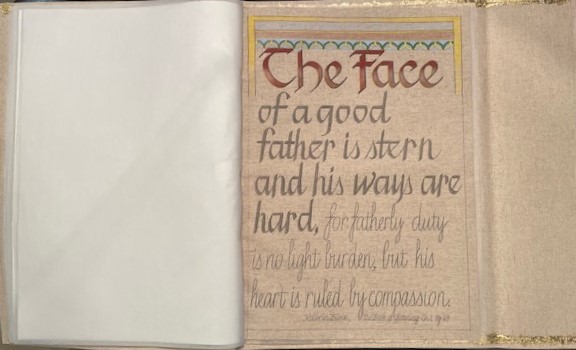 The Face
of a good
father is stern
and his ways are
hard, for fatherly duty
is no light burden, but his
heart is ruled by compassion.